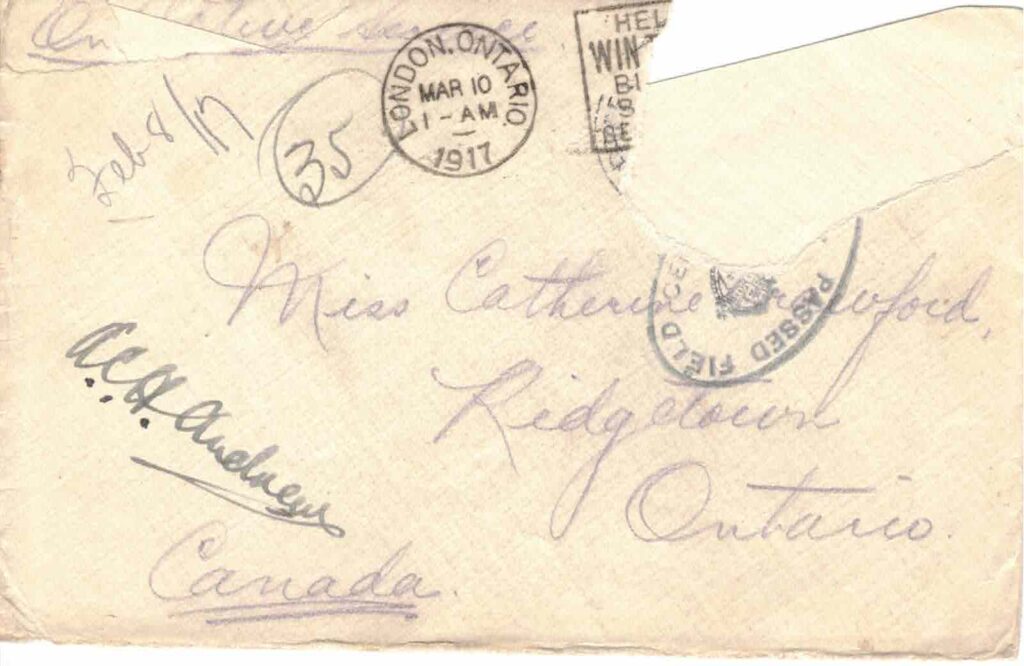 On Active Service
LONDON, ONTARIO.
MAR 10
1 - AM
1917
HEL
WIN T
BE
Feb 8/17
35
Miss Catherine Crawford,
PASSED FIELD CE
Ridgetown
Ontario.
Canada.